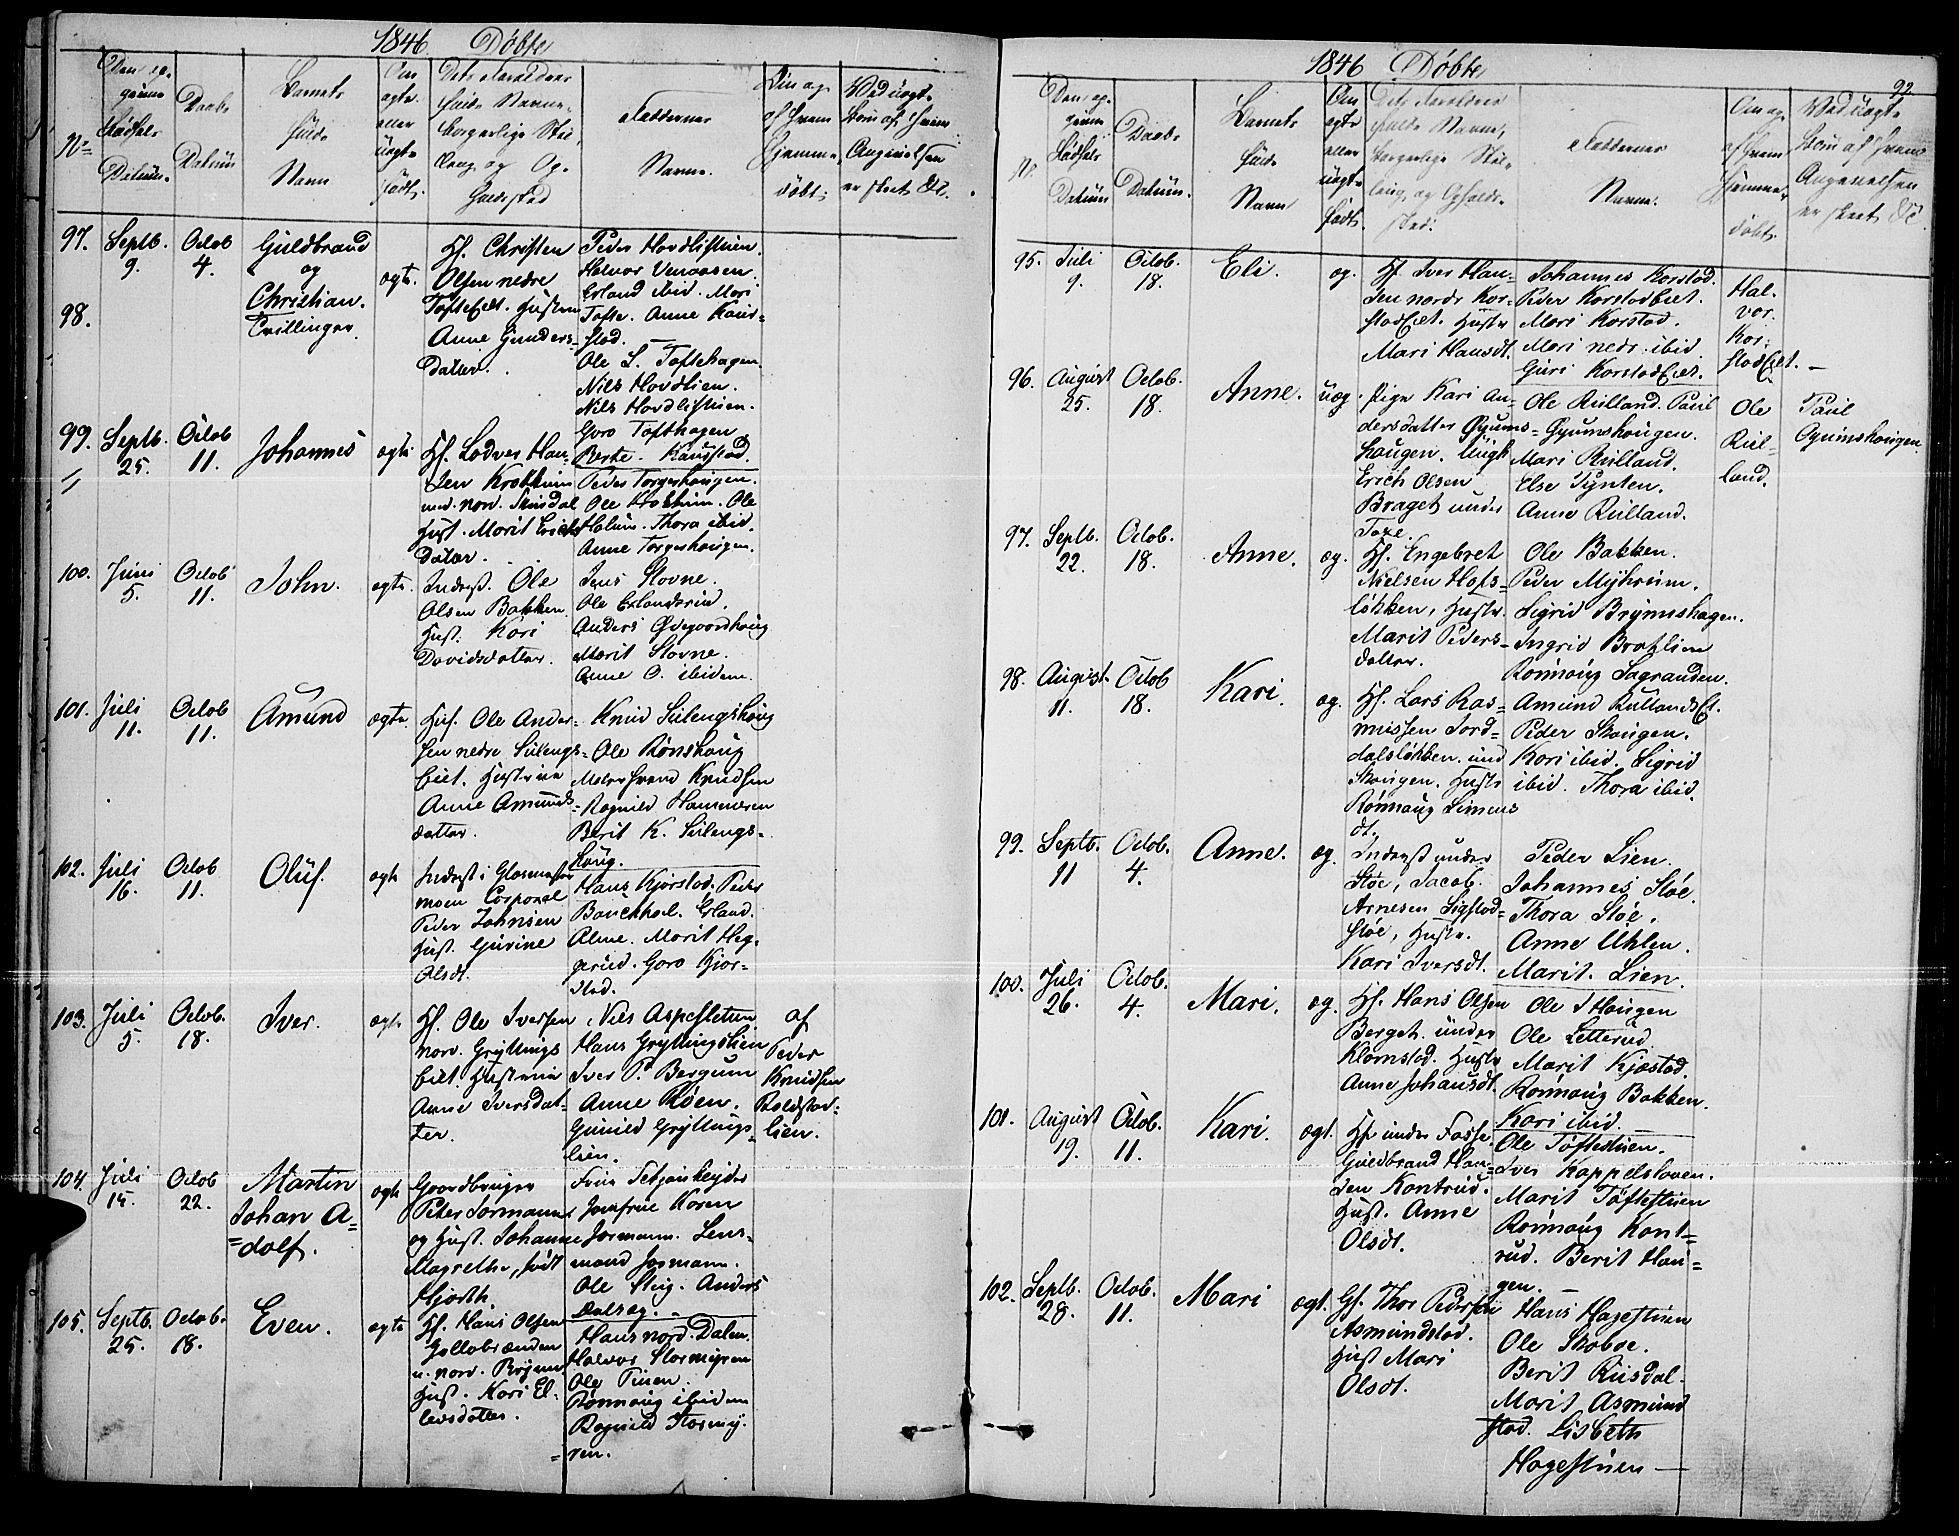 1846. Döbte
No
Den op-
givne
Födsels
Datum.
Daabs
Datum
Barnets
fulde
Navn
Om
ægte
eller
uægte
födt.
Dets Forældres
fulde Navne,
borgerlige Stil-
ling og Op-
holdssted
Faddernes
Navne.
Om og
af hvem
hjemme-
döbt;
Ved uægte
Börn af hvem
Angivelsen
er skeet &c.
97.
98.
Septb.
9.
Octob
4.
Guldbrand
og
Christian.
Tvillinger.
ægte.
Hf. Christen
Olsen nedre
TofteEiet. Hustru
Anne Gunders-
datter.
Peder Hovdlistuen.
Halvor Venaasen.
Erland ibid. Mari
Tofte. Anne Kaur-
stad.
Ole S. Toftehagen.
Nils Hovdlien.
Nils Hovdlistuen.
Goro Tofthagen
Berte. Kaurstad.
99.
Septb.
25.
Octob
11.
Johannes
ægte
Hf. Lodver Han-
sen Krokhim
und. nor. Sundal
Hust. Marit Erichs
Datter.
Peder Torgershaugen.
Ole Krokhim. Ole
Holum. Thora ibid.
Anne Torgershaugen.
100.
Juni
5.
Octob
11.
John.
ægte.
Inderst. Ole
Olsen Bakken
Hust. Kari
Davidsdatter.
Jens Slovne.
Ole Erlandsrud.
Anders Ødegaardhaug
Marit Slovne.
Anne O. ibidem.
101.
Juli
11.
Octob
11.
Amund
ægte
Huf. Ole Ander-
sen nedre Sulengs-
eiet. Hustrue
Anne Amunds-
datter.
Knud Sulengshaug
Ole Rønshaug
Medev Svend Knudsen
Rognild Hammeren
Berit K. Sulengs-
haug.
102.
Juli
16.
Octob
11.
Oluf.
ægte
Inderst i Glasmester
moen Corporal
Peder Johnsen
Hust. Gurine
Olsdt.
Hans Kjorstad. Peder
Bauckhol. Erland.
Alme. Marit Heg-
gerud. Goro Kjor-
stad.
103.
Juli
5.
Octob.
18.
Iver.
ægte
Hf. Ole Iversen
nor. Gryttings
Eiet. Hustrue
Anne Iversdat-
ter.
Nils Aspesletten
Hans Gryttingslien
Iver P. Bergum
Anne Röen.
Gunild Gryttings-
lien.
af
Peder
Knudsen
Roldstad-
lien.
104.
Juli
15.
Octob
22.
Martin
Johan A-
dolf.
ægte
Gaardbruger
Peter Jormann
og Hust. Johanne
Magrethe, födt
Hjorth.
Frue
Jomfrue Karen
Jormann. Lens-
mand Jormann.
Ole Steig. Anders
Dalseg.
105.
Septb.
25.
Octob.
18.
Even.
ægte
Hf. Hans Olsen
Gollobrænden
u. nor. Brynn
Hust. Kari El-
levsdatter.
Hans nord. Dalen.
Halvor Stormyren
Ole Tuen.
Rönnaug ibidem
Rognild Stormy-
ren.
1846 Döbte
92
No.
Den op-
givne
Födsels
Datum
Daabs
Datum.
Barnets
fulde
Navn
Om
ægte
eller
uægte
födt.
Dets Forældres
fulde Navne,
borgerlige Stil-
ling, og Opholds-
sted.
Faddernes
Navne.
Om og
af hvem
hjemme-
döbt.
Ved uægte
Börn af hvem
Angivelsen
er skeet &c
95.
Juli
9.
Octob.
18.
Eli.
æg.
Hf. Iver Han-
sen nordr Kor-
stadEiet. Hustr
Mari Hansdt.
Johannes Korstad.
Peder KorstadEiet.
Mari Korstad.
Mari nedr. ibid.
Guri KorstadEiet.
Hal-
vor
Kor-
stadEiet.
96.
August
25.
Octob.
18.
Anne.
uæg.
Pige Kari An-
dersdatter Øyums-
haugen. Ungk
Erich Olsen
Braget under
Toxe.
Ole Rulland. Paul
Øyumshaugen.
Mari Rulland.
Else Tynten.
Anne Rulland.
Ole
Rul-
land.
Paul
Øyumshaugen.
97.
Septb.
22.
Octob.
18.
Anne.
æg.
Hf. Engebret
Nielsen Hofs-
løkken, Hustr
Marit Peders-
datter.
Ole Bakken.
Peder Myhreim.
Sigrid Brynnshagen.
Ingrid Bratlien
Rönnaug Lagranden.
98.
August
11.
Octob
18.
Kari
æg.
Hf. Lars Ras-
mussen Jord-
dalsløkken. und
Skougen. Hustr
Rönnaug Simens
dt.
Amund RullandsEt.
Peder Skougen.
Kari ibid. Sigrid
ibid. Thora ibid.
99.
Septb.
11
Octob.
4.
Anne.
æg.
Inderst under
Støe, Jacob.
Arnesen Sigstad-
støe, Hustr.
Kari Iversdt.
Peder Lien.
Johannes Støe.
Thora Støe.
Anne Uhlen.
Marit. Lien.
100.
Juli
26.
Octob.
4.
Mari.
æg.
Hf. Hans Olsen
Berget. under
Klomstad. Hustr
Anne Johansdt.
Ole S Haugen
Ole Letterud.
Marit Kjostad.
Rönnaug Bakken.
Kari ibid.
101.
August
19.
Octob.
11.
Kari.
ægt.
Hf. under Fosse.
Guldbrand Han-
sen Kontrud.
Hust. Anne
Olsdt.
Ole Toftestuen.
Iver Kappelsloven.
Marit Toftestuen
Rönnaug Kont-
rud. Berit Hau-
gen.
102.
Septb.
28.
Octob.
11.
Mari
ægt.
Gf. Thor Pedersen
Asmundstad.
Hust Mari
Olsdt.
Hans Hagestuen
Ole Skaboe.
Berit Ruisdal.
Marit Asmund
stad. Lisbeth
Hagestuen